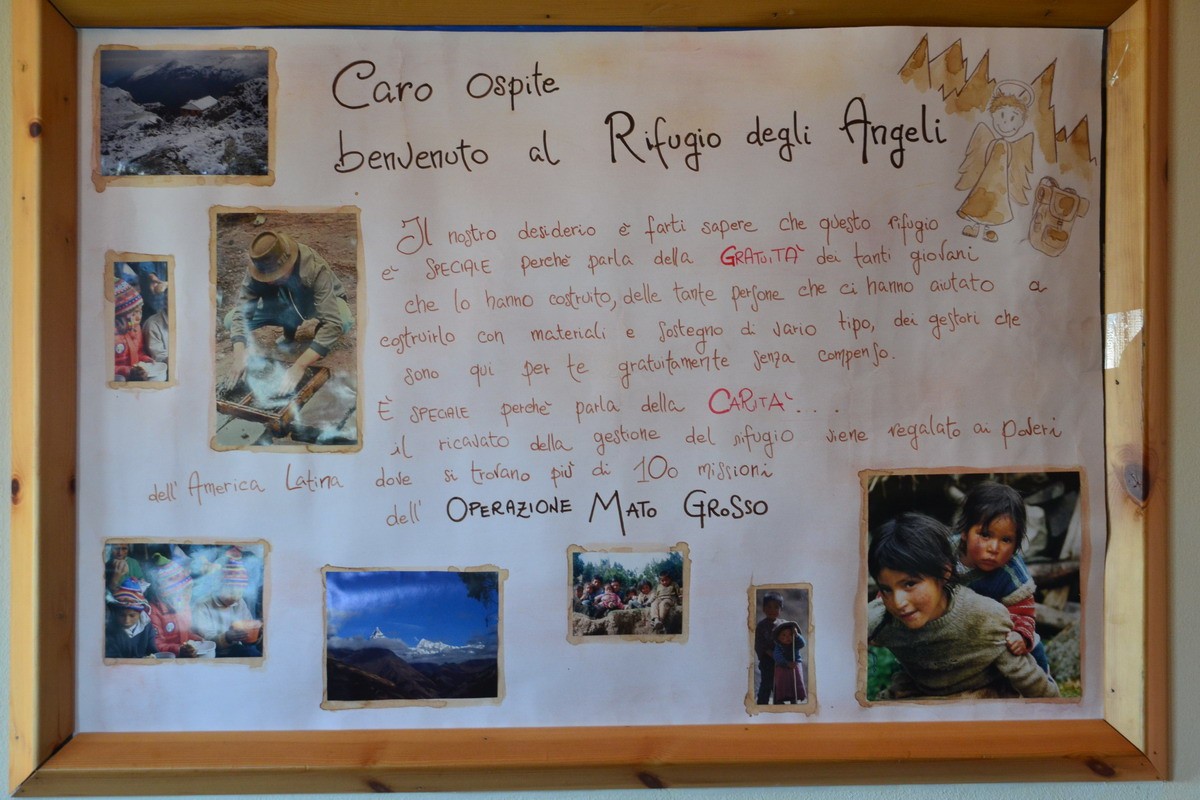 Caro ospite
benvenuto al Rifugio degli Angeli
Il nostro desiderio è farti sapere che questo rifugio
è SPECIALE perchè parla della GRATUITA' dei tanti giovani
che lo hanno costruito, delle tante persone che ci hanno aiutato a
costruirlo con materiali e sostegno di vario tipo, dei gestori che
sono qui per te gratuitamente senza compenso.
È SPECIALE perchè parla della CARITA'...
il ricavato della gestione del rifugio viene regalato ai poveri
dell'America Latina dove si trovano più di 100 missioni
dell' OPERAZIONE MATO GROSSO